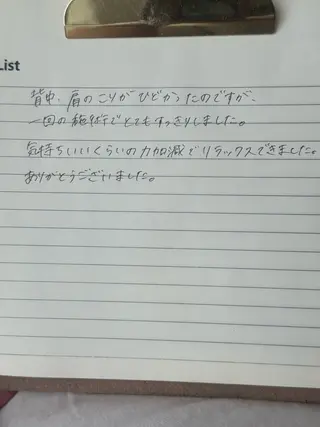 List
背中、肩のこりがひどかったのですが、
一回の施術でとてもすっきりしました。
気持ちいいくらいの力加減でリラックスできました。
ありがとうございました。